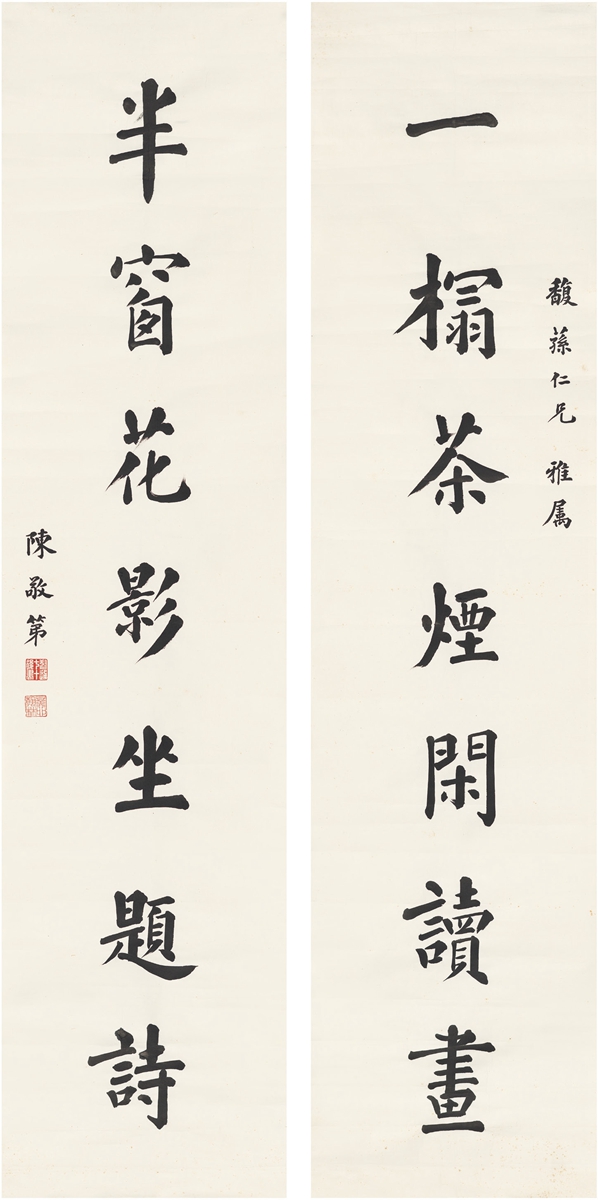 馥蓀仁兄 雅属
一榻茶煙閑讀畫
半窗花影坐題詩
陳敬第